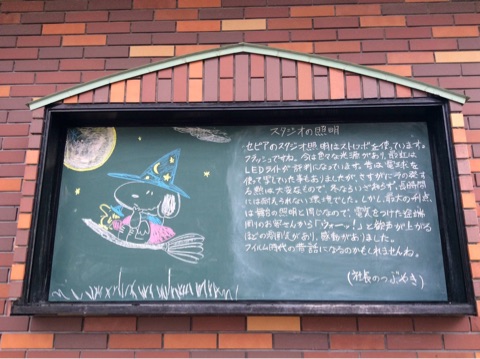 スタジオの照明
セピアのスタジオ照明はストロボを使っています。
フラッシュですね。今は色々な光源があり、最近は
LEDライトが評判になっています。昔は電球を
使って写していた事もありましたが、さすがにその発す
る熱は大変なもので、冬ならいざ知らず、長時間
には耐えられない環境でした。しかし、最大の利点
は舞台の照明と同じなので、電気をつけた途端
周りのお客さんから「ウォーッ!」と歓声が上がる
ほどの雰囲気があり、感動がありました。
フィルム時代の昔話になるのかもしれませんね。
(社長のつぶやき)